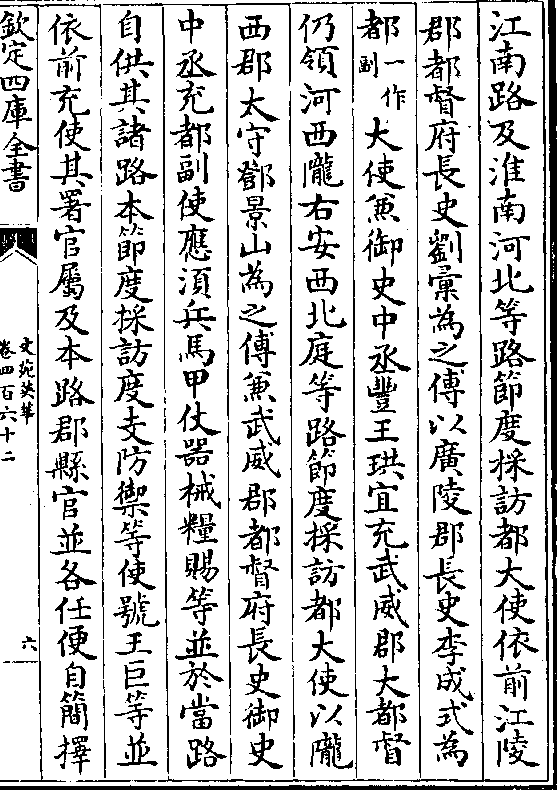 江南路及淮南河北等路節度採訪都大使依前江陵
郡都督府長史劉彙為之傅以廣陵郡長史李成式為
都一作副大使兼御史中丞豐王珙宜充武威郡大都督
仍領河西隴右安西北庭等路節度採訪都大使以隴
西郡太守鄧景山為之傅兼武威郡都督府長史御史
中丞充都副使應湏兵馬甲仗器械糧賜等並於當路
自供其諸路本節度採訪度支防禦等使號王巨等並
依前充使其署官屬及本路郡縣官並各任便自簡擇
欽定四庫全書
文苑英華
卷四百六十二
六